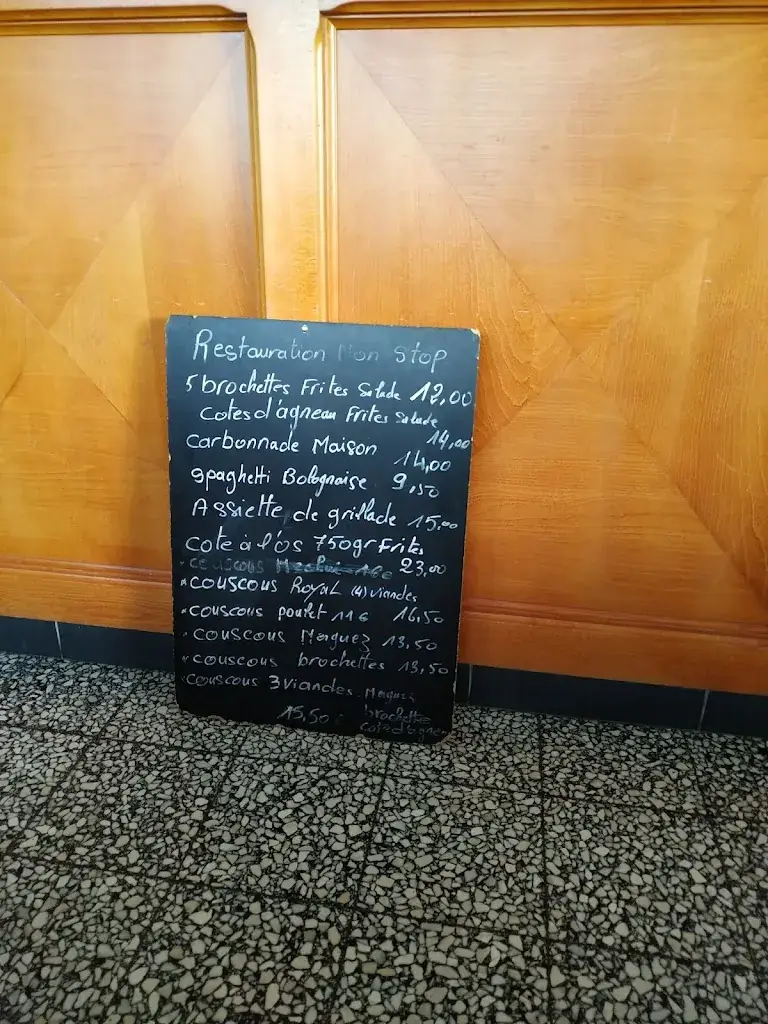 Restauration Non Stop
5 brochettes Frites Salade 12,00
Cotes d'agneau Frites Salade
14,00
Carbonnade Maison 14,00
spaghetti Bolognaise 9,50
Assiette de grillade 15,00
cote à l'os 750gr Frites
23,00
couscous Mechoui 16€
*couscous Royal (4) viandes
*couscous poulet 11€ 16,50
*couscous Merguez 13,50
*couscous brochettes 13,50
*couscous 3 viandes Merguez
15,50€ brochette
Cote d'agneau